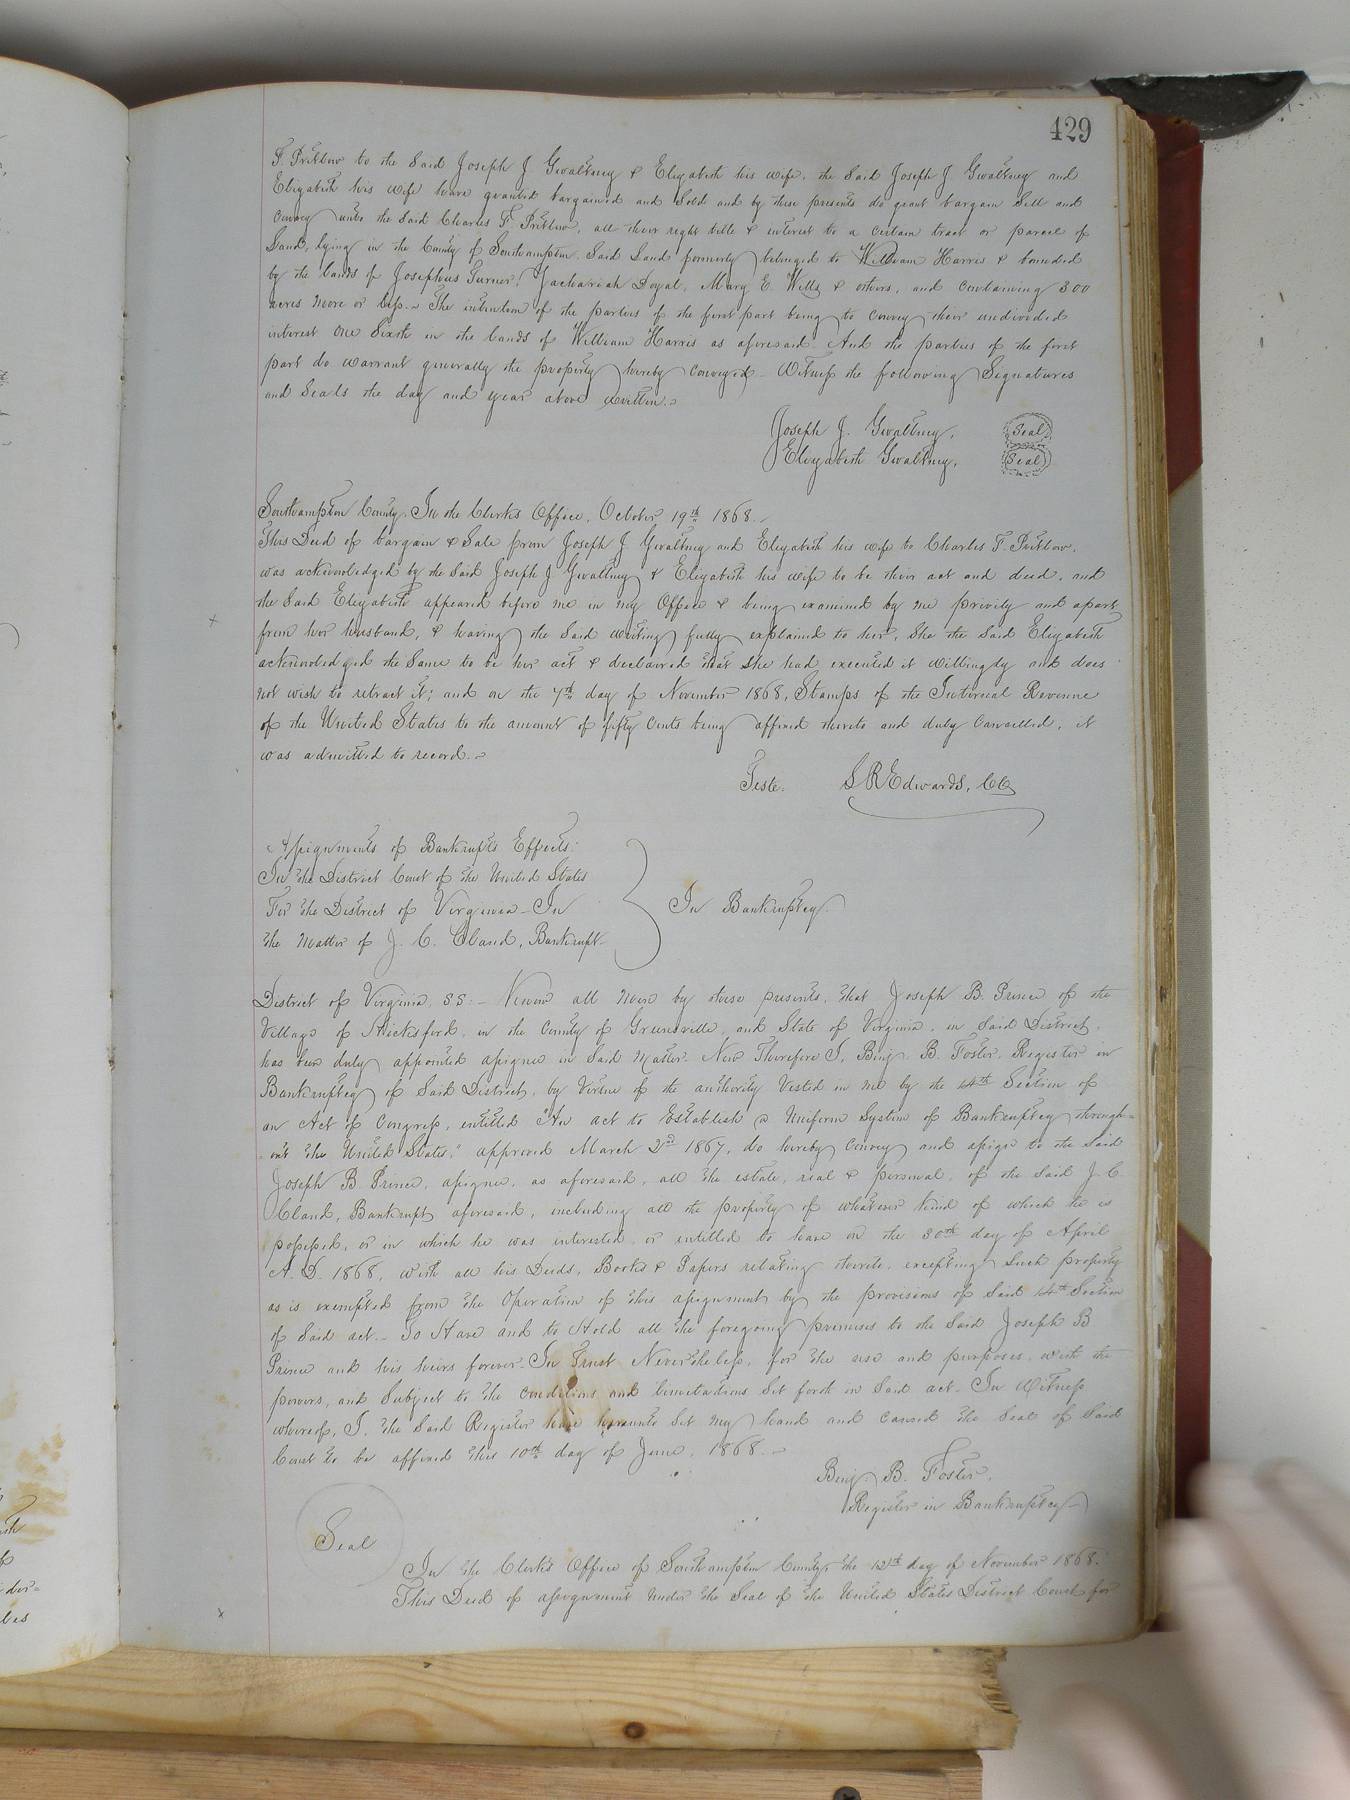 429
F. Pretlow to the Said Joseph J. Gwaltney & Elizabeth his wife, the Said Joseph J. Gwaltney and
Elizabeth his wife have granted bargained and Sold and by these presents do grant bargain Sell and
Convey unto the Said Charles F. Pretlow, all their right title & interest to a certain tract or parcel of
Land, lying in the County of Southampton. Said Land formerly belonged to William Harris & bounded
by the lands of Josephus Turner, Zachariah Doyal, Mary E. Wells & others, and Containing 300
acres more or less. The intention of the parties of the first part being to Convey their undivided
interest One Sixth in the lands of William Harris as aforesaid. And the parties of the first
part do warrant generally the property hereby Conveyed. Witness the following Signatures
and Seals the day and year above written.
Joseph J. Gwaltney, Seal
Elizabeth Gwaltney, Seal
Southampton County. In the Clerks Office, October 19th 1868.
This Deed of bargain & Sale from Joseph J Gwaltney and Elizabeth his wife to Charles F. Pretlow.
was acknowledged by the Said Joseph J Gwaltney & Elizabeth his wife to be their act and deed, and
the Said Elizabeth appeared before me in my Office & being examined by me privily and apart
from her husband, & having the Said writing fully explained to her, She the Said Elizabeth
acknowledged the Same to be her act & declared that She had executed it willingly and does
not wish to retract it; and on the 7th day of November 1868, Stamps of the Internal Revenue
of the United States to the amount of fifty Cents being affixed thereto and duly Cancelled, it
was admitted to record.
Teste. L R Edwards, CC
Assignments of Bankrupts Effects.
In the District Court of the United States
For the District of Virginia - In
the Matter of J. C. Claud, Bankrupt
In Bankruptcy.
District of Virginia, SS: - Know all Men by these presents, that Joseph B. Prince of the
Village of Hicksford, in the County of Greensville, and State of Virginia, in Said District,
has been duly appointed assignee in Said Matter. Now Therefore I, Benj. B. Foster, Register in
Bankruptcy of Said District, by Virtue of the authority Vested in me by the 14th Section of
an Act of Congress, entitled "An act to Establish a Uniform System of Bankruptcy through=
out the United States," approved March 2d 1867, do hereby Convey and assign to the Said
Joseph B. Prince, assignee, as aforesaid, all the estate, real & personal, of the Said J. C.
Claud, Bankrupt aforesaid, including all the property of whatever kind of which he is
possessed, or in which he was interested or entitled to have on the 30th day of April
A. D. 1868, with all his Deeds, Books & Papers relating thereto, excepting Such property
as is exempted from the Operation of this assignment by the provisions of Said 14th Section
of Said act. To Have and to Hold all the foregoing premises to the Said Joseph B
Prince and his heirs forever. In Trust Nevertheless, for the use and purposes, with the
powers, and Subject to the Conditions and limitations Set forth in Said act. In Witness
whereof, I, the Said Register have hereunto Set my hand and Caused the Seal of Said
Court to be affixed this 10th day of June, 1868.
Benj. B. Foster,
Register in Bankruptcy
Seal
In the Clerk's Office of Southampton County, the 12th day of November 1868.
This Deed of assignment under the Seal of the United States District Court for